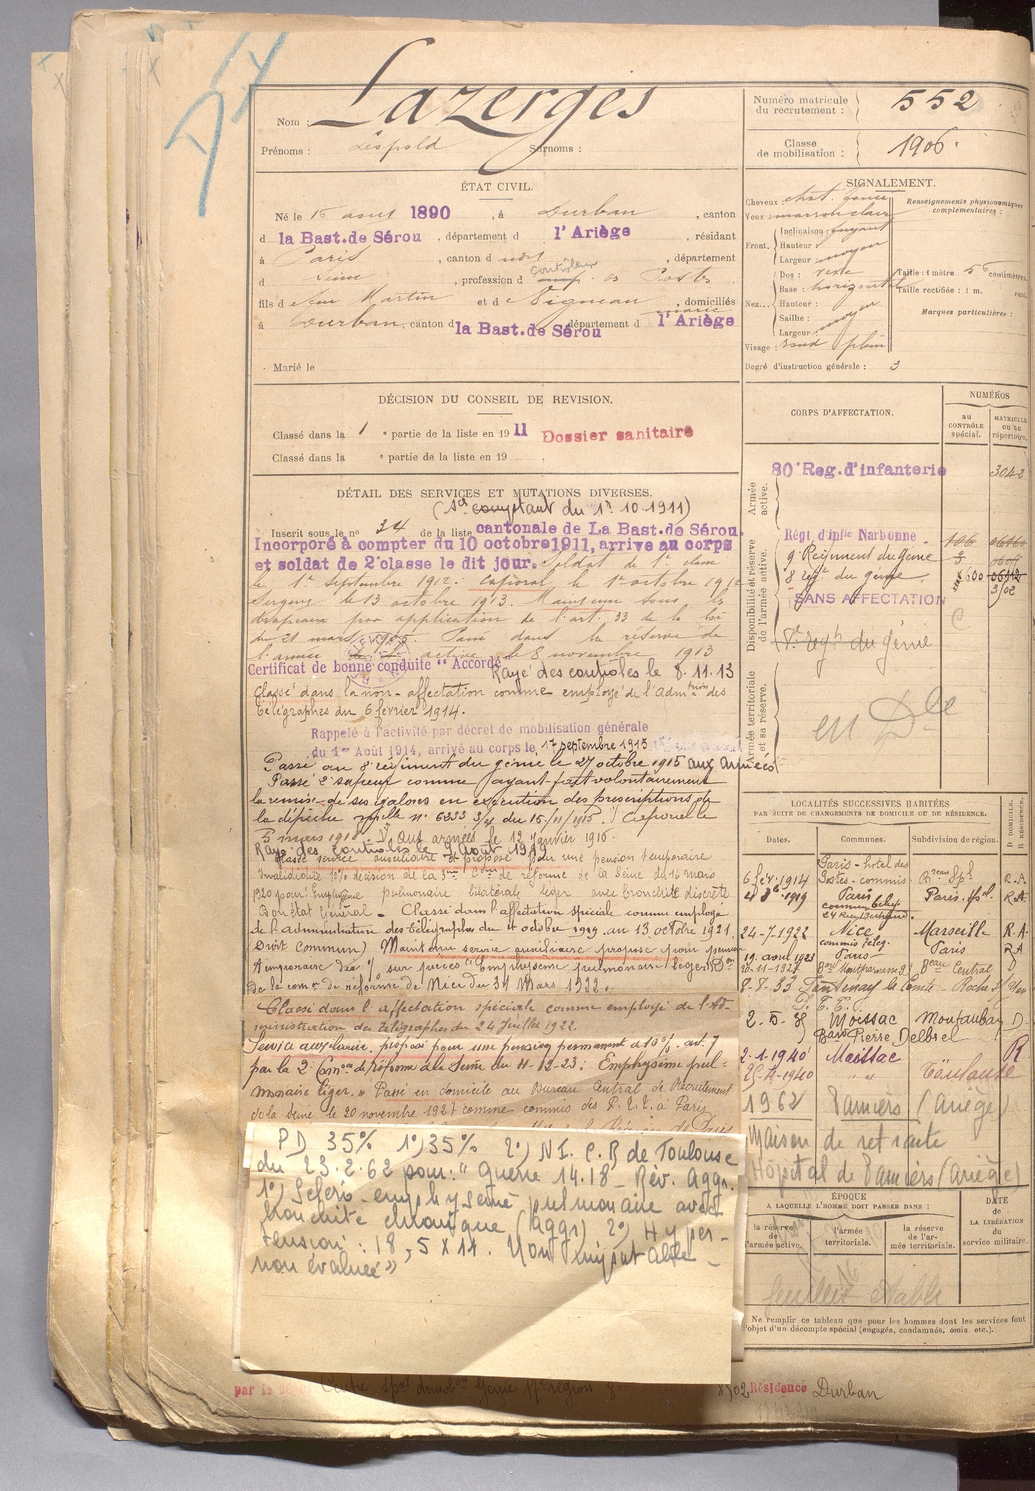 Nom : Lazerges
Prénoms : Léopold Surnoms :
ÉTAT CIVIL.
Né le 15 août 1890, à Durban, canton
d la Bast. de Sérou, département d l'Ariège, résidant
à Paris, canton d, département
d Seine, profession d contrôleur des Postes
fils d Jean Martin et d Vigneau, domiciliés
à Durban, canton d la Bast. de Sérou département d l'Ariège
Marié le
DÉCISION DU CONSEIL DE REVISION.
Classé dans la 1e partie de la liste en 1911 Dossier sanitaire
Classé dans la e partie de la liste en 19 .
DÉTAIL DES SERVICES ET MUTATIONS DIVERSES.
(Sce comptant du 1er 10-1911)
Inscrit sous le n° 34 de la liste cantonale de La Bast. de Sérou
Incorporé à compter du 10 octobre 1911, arrive au corps
et soldat de 2e classe le dit jour. Soldat de 1e classe
le 1er septembre 1912. Caporal le 1er octobre 1912
Sergent le 13 octobre 1913. Maintenu sous les
drapeaux par application de l'art. 33 de la loi
du 21 mars 1905. Passé dans la réserve de
l'armée active le 8 novembre 1913
Certificat de bonne conduite "Accordé" Rayé des contrôles le 8.11.13
Classé dans la non-affectation comme employé de l'Admtion des
Télégraphes du 6 février 1914.
Rappelé à l'activité par décret de mobilisation générale
du 1er Août 1914, arrivé au corps le 17 septembre 1915
Passé au 8e régiment du génie le 27 octobre 1915 aux armées
Passé 2e sapeur comme ayant fait volontairement
la remise de ses galons en exécution des prescriptions de
la dépêche mlle n° 6333 3/4 du 15/11/1915. Caporal le
5 mars 1918. Aux armées le 12 Janvier 1916.
Rayé des contrôles le 9 Août 1919
Classé service auxiliaire et proposé pour une pension temporaire
invalidité 10% décision de la Con de réforme de la Seine du 16 mars
1920 pour Emphysème pulmonaire bilatéral léger avec bronchite discrète
Bon état Général. Classé dans l'affectation spéciale comme employé
de l'administration des Télégraphes du 4 octobre 1919 au 13 octobre 1921.
Droit Commun) Maintenu service auxiliaire proposé pour pension
temporaire 10% sur pièces "Emphysème pulmonaire léger" Don
de la comon de réforme de Nice du 31 Mars 1922.
Classé dans l'affectation spéciale comme employé de l'Ad-
ministration des Télégraphes du 24 Juillet 1922.
Service auxiliaire, proposé pour une pension permanente à 10% art. 7
par la 2e Comon de réforme de la Seine du 11-12-23: Emphysème pul-
monaire léger. Passé en domicile au Bureau Central de Recrutement
de la Seine le 20 novembre 1927 comme commis des P.T.T. à Paris
P.D. 35% 1°) 35% 2°) N I. C.R de Toulouse
du 23.2.62 pour: "Guerre 14.18 - Rév. Aggr.
1°) Scléro-emphysème pulmonaire avec
bronchite chronique (Aggr) 2°) Hyper-
tension: 18,5 x 11. Non imputable -
non évaluée"
Centre spal démobon Génie 17e région
8502 Résidence Durban
Numéro matricule du recrutement : 552
Classe de mobilisation : 1906.
SIGNALEMENT.
Cheveux : chat. foncé
Yeux marron clair
Front. Inclinaison : fuyant
Hauteur : moyen
Largeur : moyen
Nez. Dos : recte
Base : horizontal
Hauteur :
Saillie :
Largeur : moyen
Visage : rond plein
Renseignements physionomiques complémentaires :
Taille : 1 mètre 56 centimètres.
Taille rectifiée : 1 m. cent.
Marques particulières :
Degré d'instruction générale : 3
CORPS D'AFFECTATION.
NUMÉROS
au CONTRÔLE spécial.
MATRICULE ou au répertoire.
Armée active.
80e Reg. d'infanterie 3042
Disponibilité et réserve de l'armée active.
Régt d'Infie Narbonne 106
9e Régiment du Génie 3
8 régt du génie 8600
3/02
SANS AFFECTATION
8e régt du génie
Armée territoriale et sa réserve.
en Dle
LOCALITÉS SUCCESSIVES HABITÉES
PAR SUITE DE CHANGEMENTS DE DOMICILE OU DE RÉSIDENCE.
Dates. Communes. Subdivision de région. D. DOMICILE. R. RÉSIDENCE.
6 fév. 1914 Paris - hôtel des Postes - commis R.A
1919 Paris commis télég. 24 Rue Paris. R.A
24-7-1922 Nice commis télég. Marseille R.A.
19 août 1923 Paris Paris R A
20-11-1927 Bd Montparnasse Beau Central D
8-8-33 Fontenay le Comte - Roche s/ Yon
P.T.T.
2.5.35 Moissac Montauban D.
Bard Pierre Delbrel
2-1-1940 Moissac R
25-4-1940 " " Toulouse
1962 Pamiers (Ariège)
Maison de retraite
Hôpital de Pamiers (Ariège)
ÉPOQUE
A LAQUELLE L'HOMME DOIT PASSER DANS :
la réserve de l'armée active.
l'armée territoriale.
la réserve de l'armée territoriale.
DATE de LA LIBÉRATION du service militaire.
feuillet établi
Ne remplir ce tableau que pour les hommes dont les services font
l'objet d'un décompte spécial (engagés, condamnés, omis etc.).